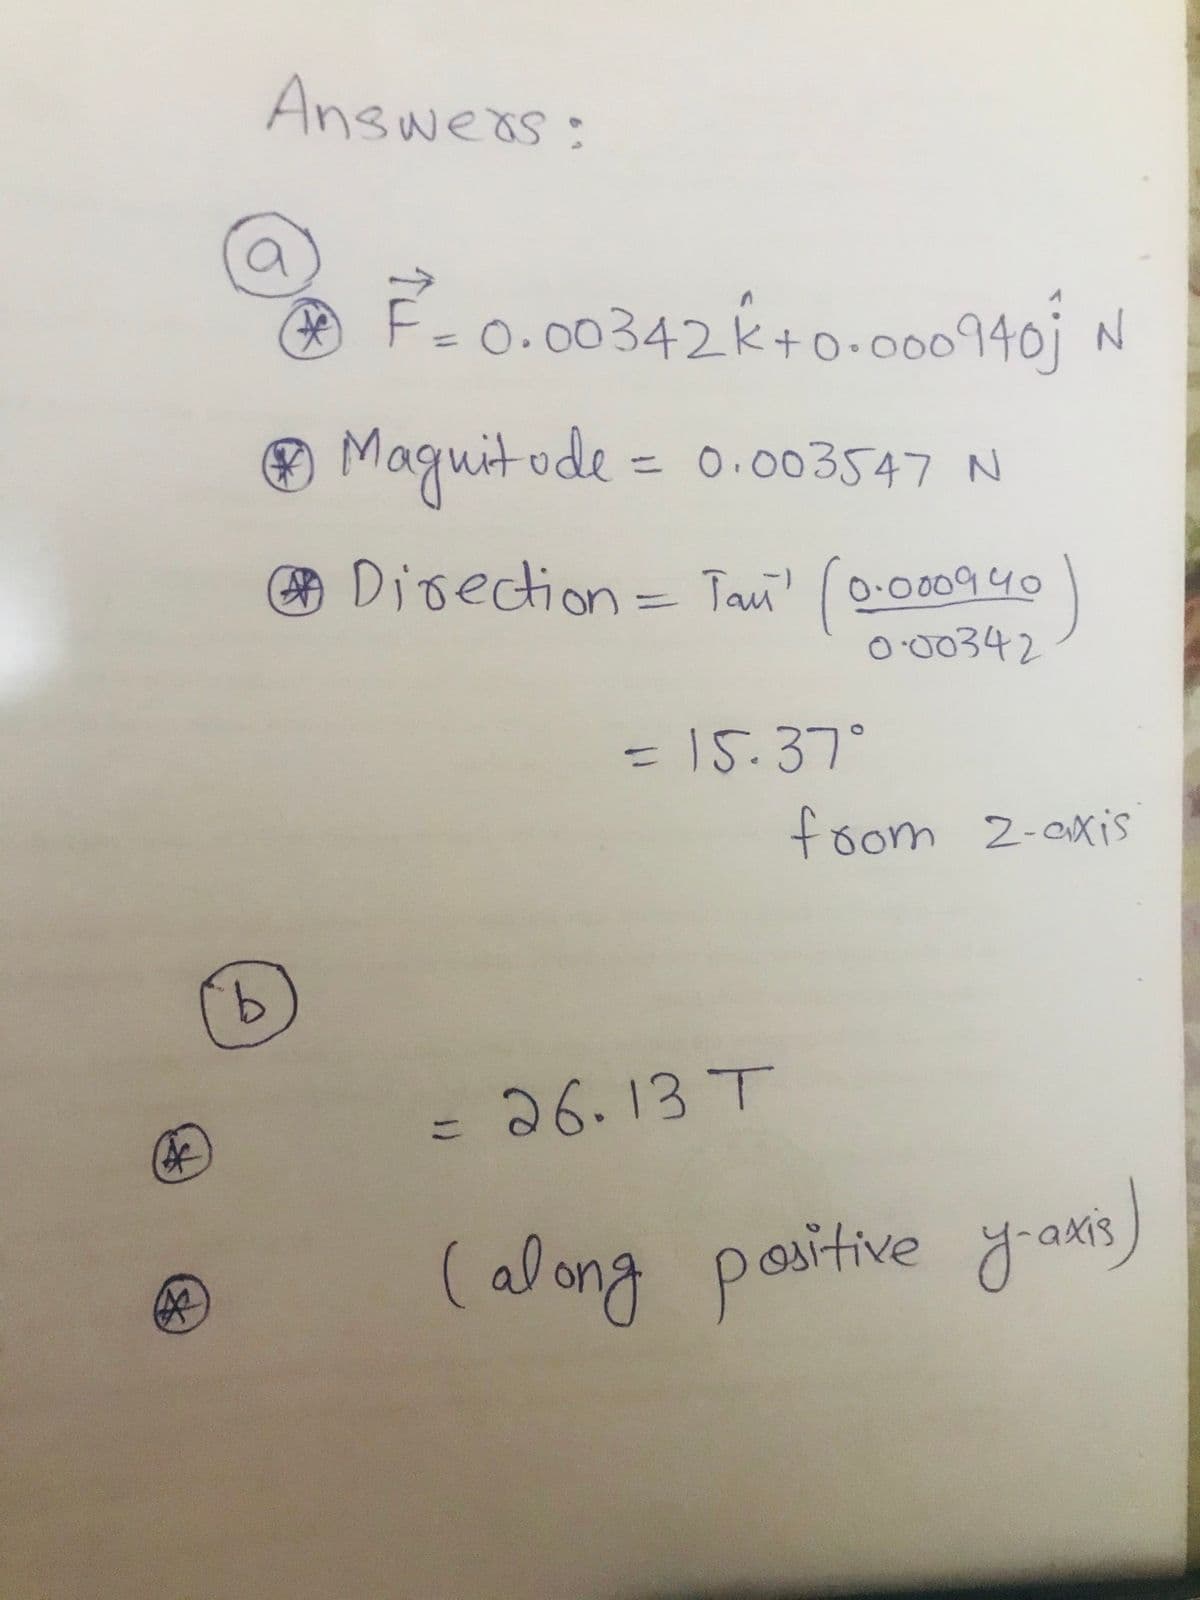 Answers:
(a)
F⃗ = 0.00342k̂ + 0.000940ĵ N
Magnitude = 0.003547 N
Direction = Tan⁻¹ (0.000940 / 0.00342)
= 15.37°
from z-axis
(b)
= 26.13 T
(along positive y-axis)